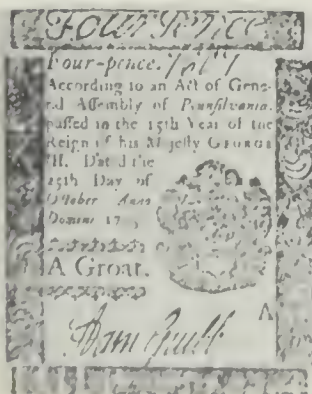 Four Pence
Four-pence.
According to an Act of Gene-
ral Assembly of Pennsylvania,
passed in the 15th Year of the
Reign of his Majesty GEORGE
III. Dated the
25th Day of
October Anno
Domini 17
A Groat.
A